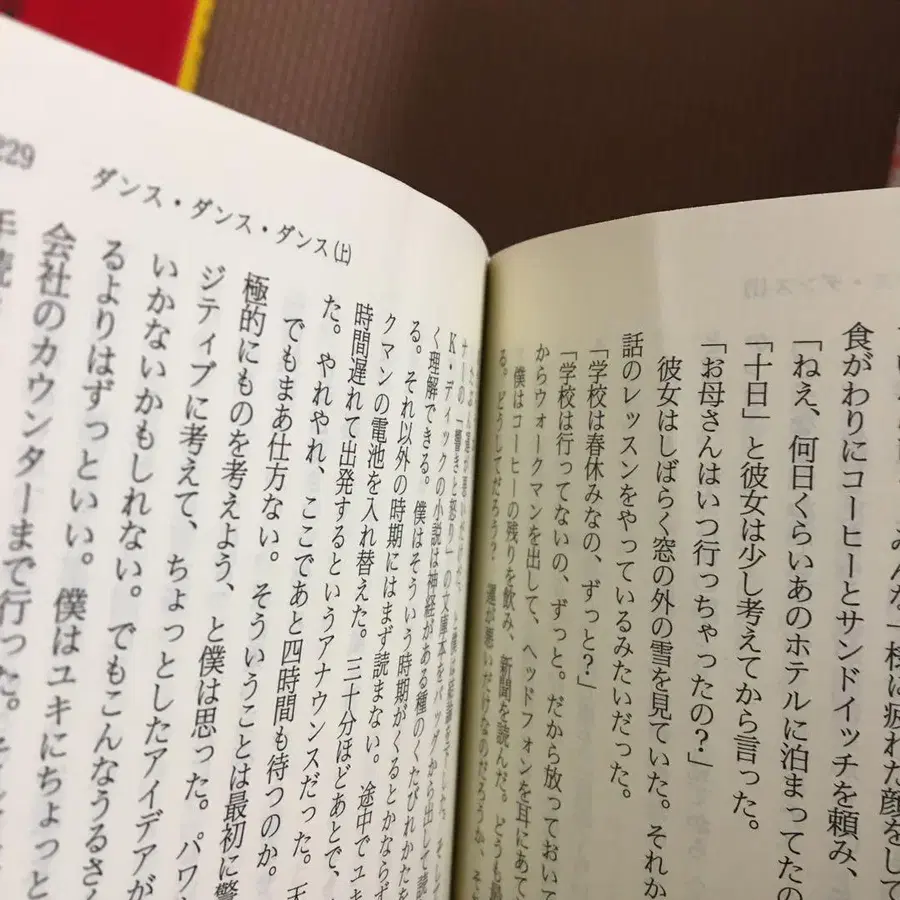 みんな一様に疲れた顔をして
食がわりにコーヒーとサンドイッチを頼み、
「ねえ、何日くらいあのホテルに泊まってたの
「十日」と彼女は少し考えてから言った。
「お母さんはいつ行っちゃったの?」
彼女はしばらく窓の外の雪を見ていた。それか
話のレッスンをやっているみたいだった。
「学校は春休みなの、ずっと?」
「学校は行ってないの、ずっと。だから放っておいて
からウォークマンを出して、ヘッドフォンを耳にあて
僕はコーヒーの残りを飲み、新聞を読んだ。どうも最
る。どうしてだろう? 運が悪いだけなのだろうか、そ
229
ダンス・ダンス・ダンス(上)
K・ディックの小説は神経がある種のくたびれかたを
く理解できる。僕はそういう時期がくるとかならず
る。それ以外の時期にはまず読まない。途中でユキ
クマンの電池を入れ替えた。三十分ほどあとで、
時間遅れて出発するというアナウンスだった。天
た。やれやれ、ここであと四時間も待つのか。
でもまあ仕方ない。そういうことは最初に警
極的にものを考えよう、と僕は思った。パワ
ジティブに考えて、ちょっとしたアイデアが
いかないかもしれない。でもこんなうるさ
るよりはずっといい。僕はユキにちょっと
会社のカウンターまで行った。